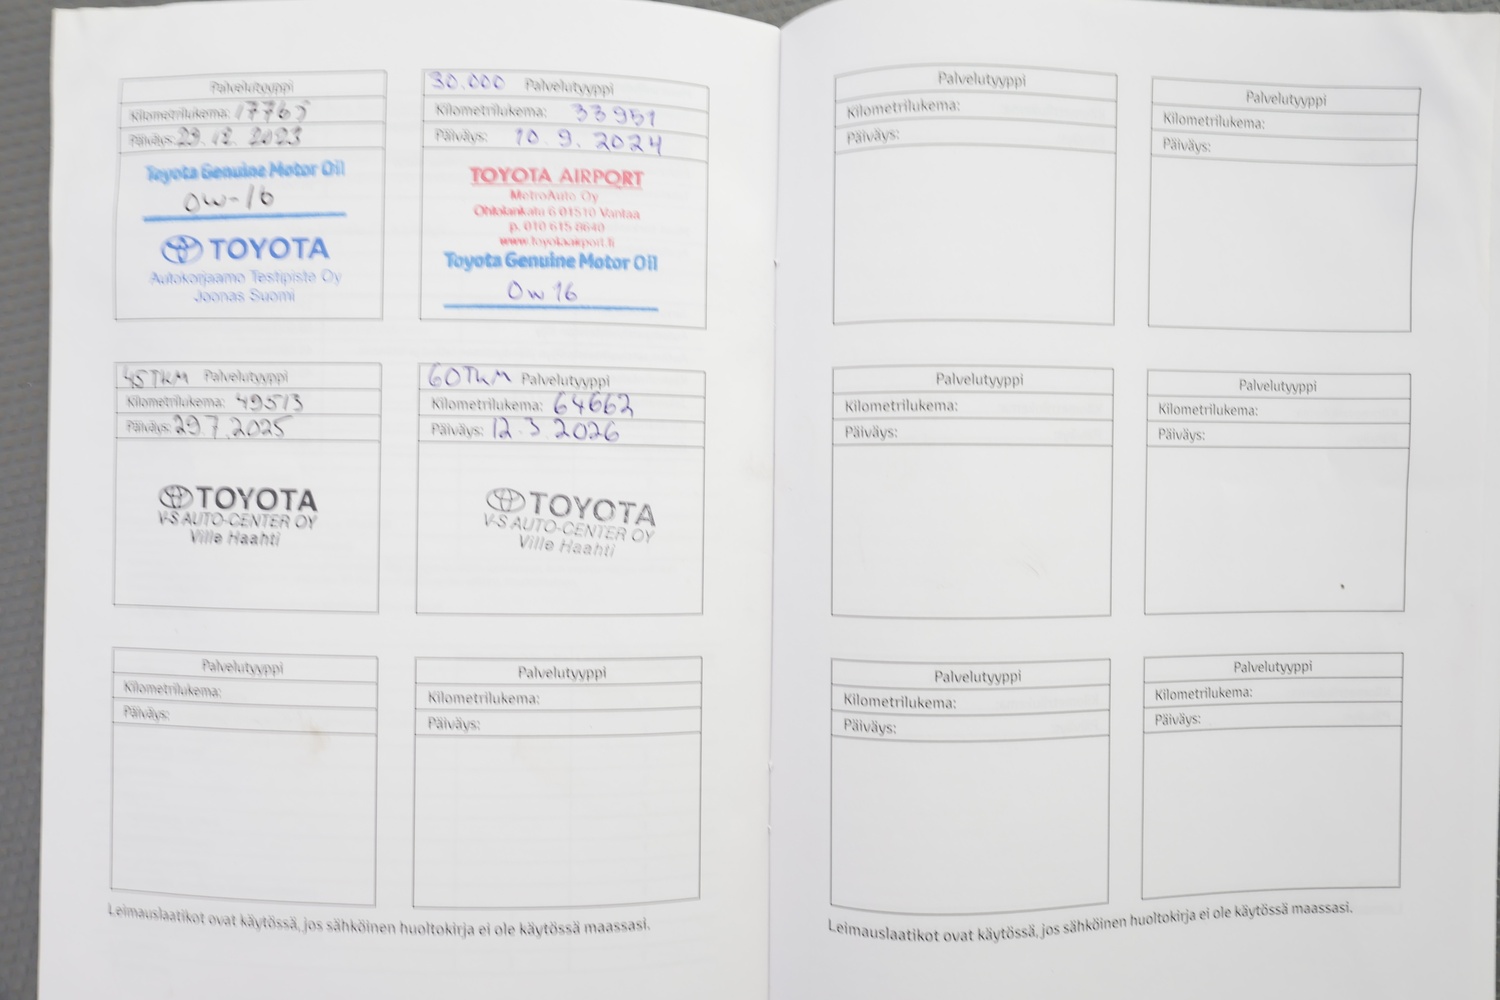 Palvelutyyppi
Kilometrilukema: 17765
Päiväys: 29.12.2023
Toyota Genuine Motor Oil
0W-16
TOYOTA
Autokorjaamo Testipiste Oy
Joonas Suomi
30.000 Palvelutyyppi
Kilometrilukema: 33951
Päiväys: 10.9.2024
TOYOTA AIRPORT
MetroAuto Oy
Ohtolankatu 6 01510 Vantaa
p. 010 615 8640
www.toyotaairport.fi
Toyota Genuine Motor Oil
0W16
45TKM Palvelutyyppi
Kilometrilukema: 49513
Päiväys: 29.7.2025
TOYOTA
V-S AUTO-CENTER OY
Ville Haahti
60TKM Palvelutyyppi
Kilometrilukema: 64662
Päiväys: 12.3.2026
TOYOTA
V-S AUTO-CENTER OY
Ville Haahti
Palvelutyyppi
Kilometrilukema:
Päiväys:
Palvelutyyppi
Kilometrilukema:
Päiväys:
Leimauslaatikot ovat käytössä, jos sähköinen huoltokirja ei ole käytössä maassasi.
Palvelutyyppi
Kilometrilukema:
Päiväys:
Palvelutyyppi
Kilometrilukema:
Päiväys:
Palvelutyyppi
Kilometrilukema:
Päiväys:
Palvelutyyppi
Kilometrilukema:
Päiväys:
Palvelutyyppi
Kilometrilukema:
Päiväys:
Palvelutyyppi
Kilometrilukema:
Päiväys:
Leimauslaatikot ovat käytössä, jos sähköinen huoltokirja ei ole käytössä maassasi.